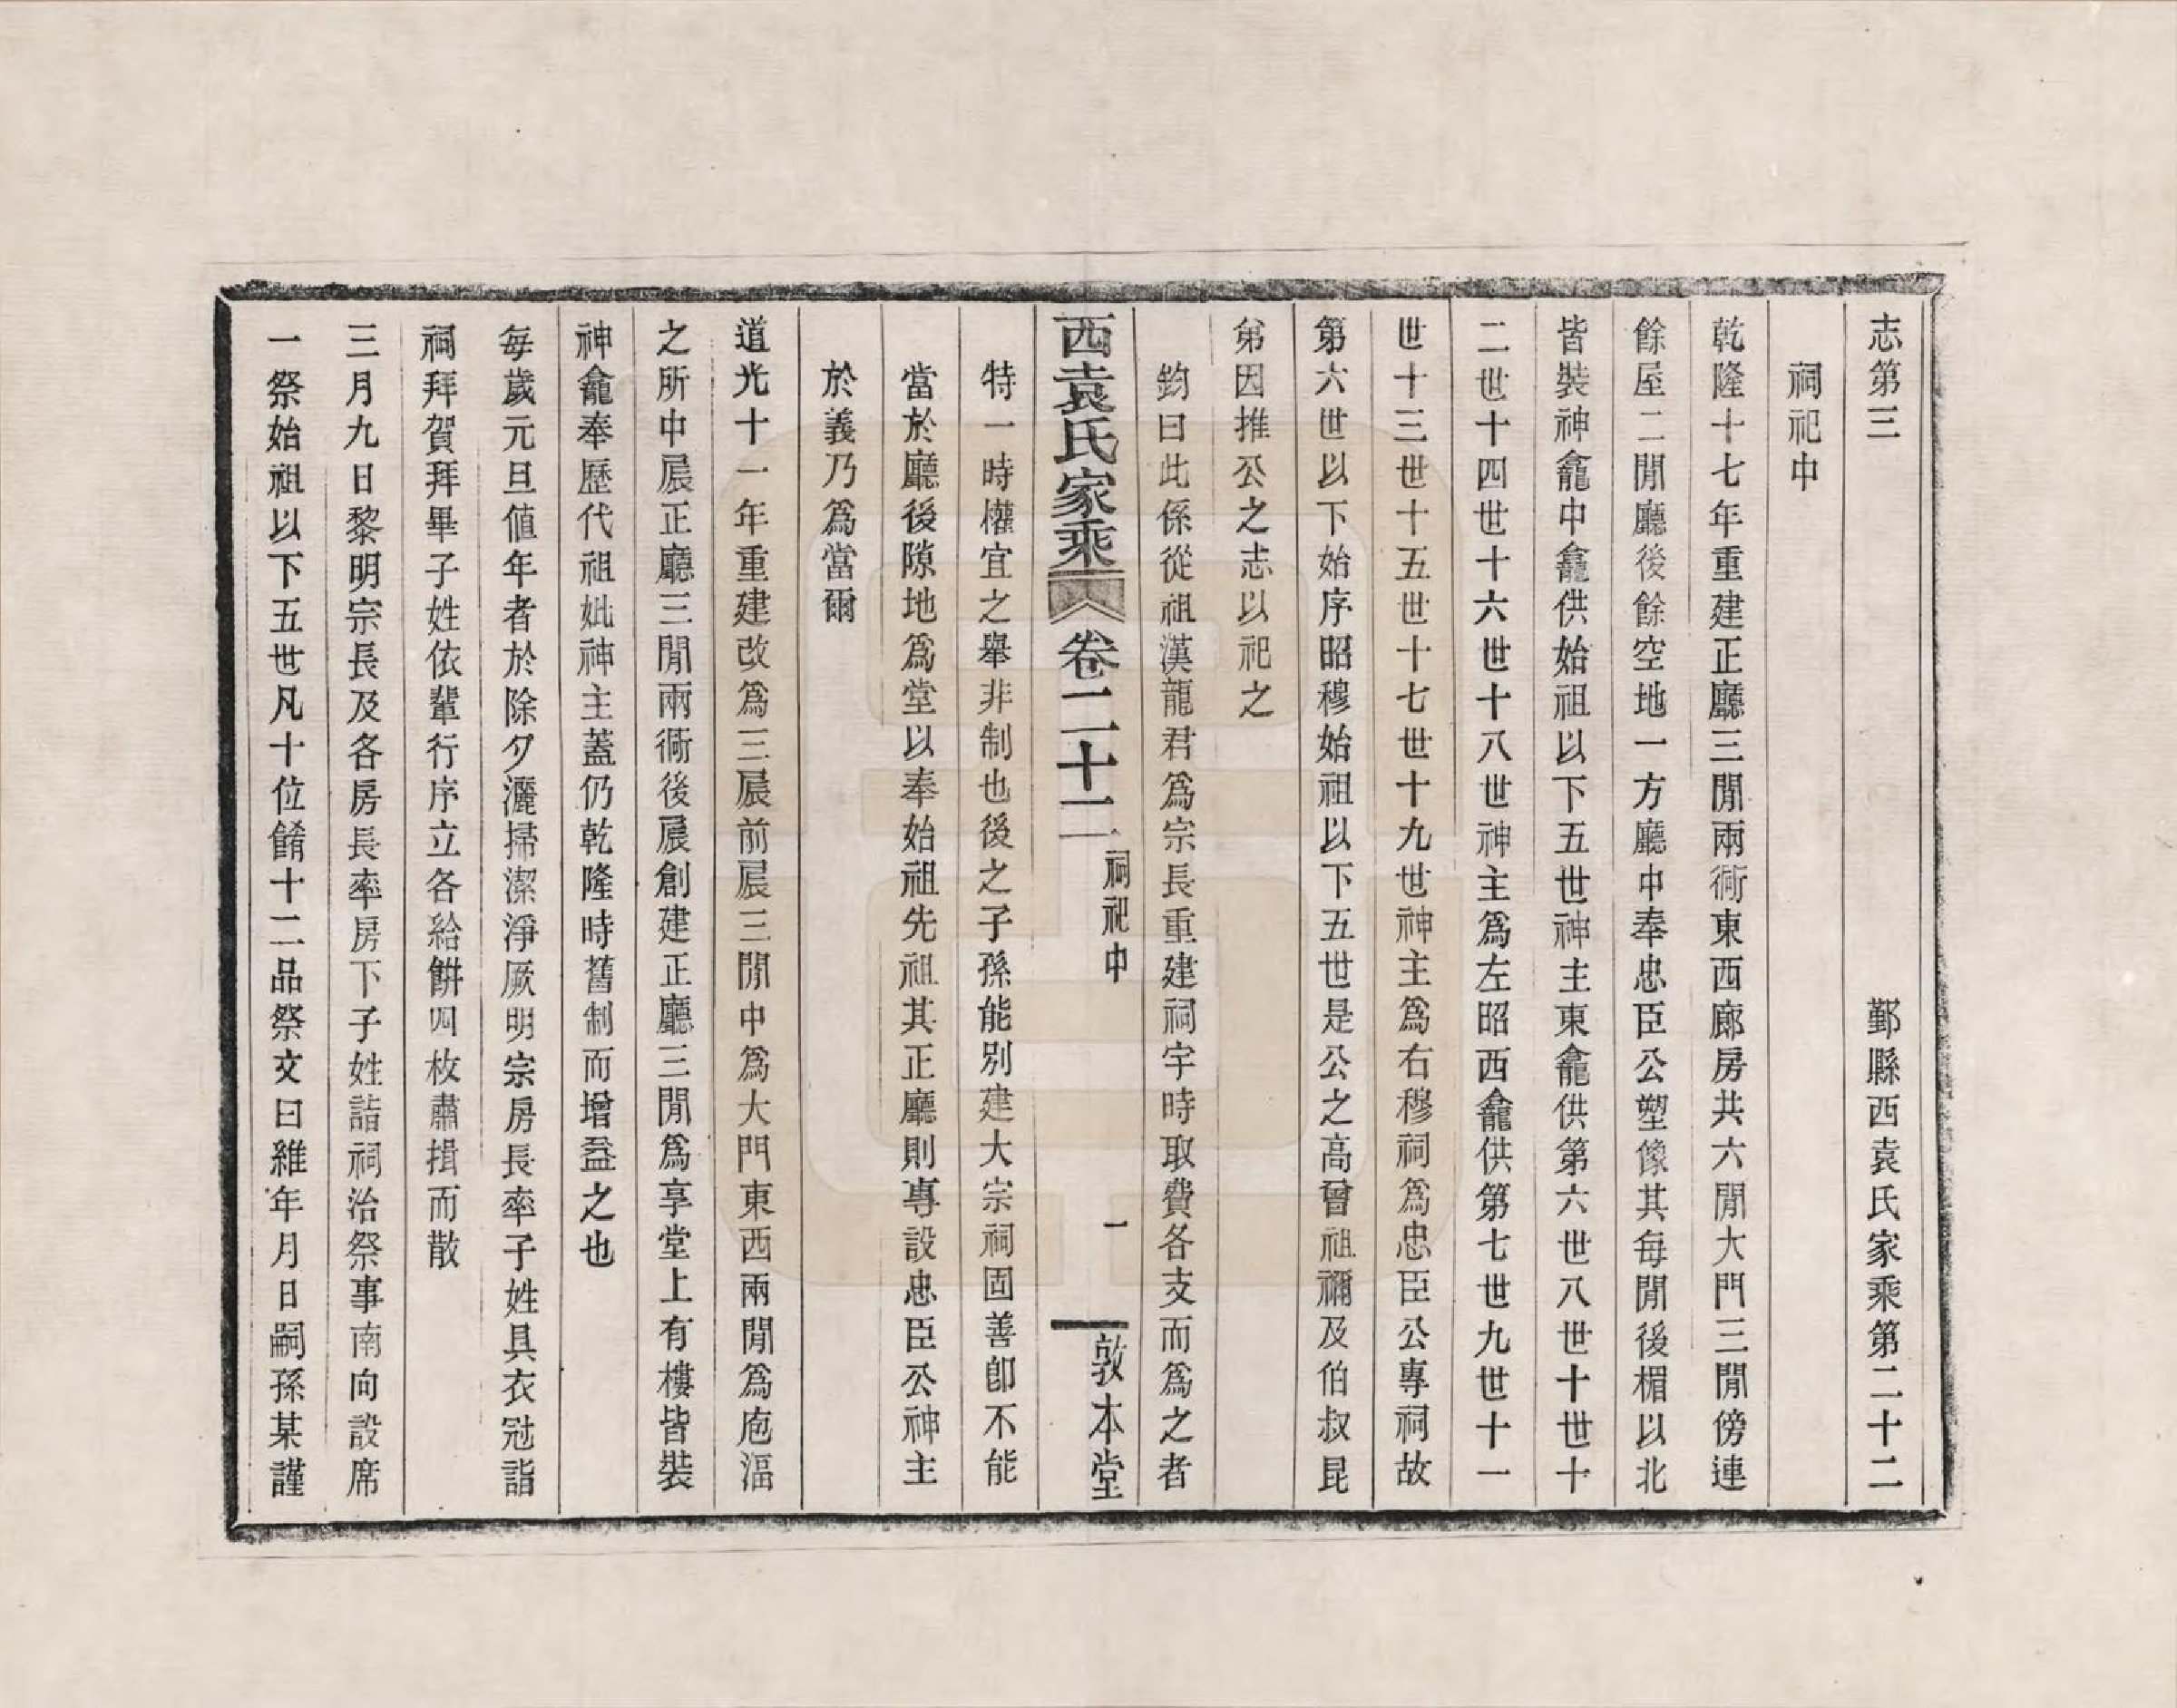 志第三　鄞縣西袁氏家乘第二十二
祠祀中
乾隆十七年重建正廳三閒兩衖東西廊房共六閒大門三閒傍連
餘屋二閒廳後餘空地一方廳中奉忠臣公塑像其每閒後楣以北
皆裝神龕中龕供始祖以下五世神主東龕供第六世八世十世十
二世十四世十六世十八世神主爲左昭西龕供第七世九世十一
世十三世十五世十七世十九世神主爲右穆祠爲忠臣公專祠故
第六世以下始序昭穆始祖以下五世是公之高曾祖禰及伯叔昆
弟因推公之志以祀之
鈞曰此係從祖漢龍君爲宗長重建祠宇時取費各支而爲之者
西袁氏家乘　卷二十二　祠祀中　一　敦本堂
特一時權宜之舉非制也後之子孫能別建大宗祠固善卽不能
當於廳後隙地爲堂以奉始祖先祖其正廳則專設忠臣公神主
於義乃爲當爾
道光十一年重建改爲三晨前晨三閒中爲大門東西兩閒爲庖湢
之所中晨正廳三閒兩衖後晨創建正廳三閒爲享堂上有樓皆裝
神龕奉歷代祖妣神主蓋仍乾隆時舊制而增益之也
每歲元旦値年者於除夕灑掃潔淨厥明宗房長率子姓具衣冠詣
祠拜賀拜畢子姓依輩行序立各給餅四枚肅揖而散
三月九日黎明宗長及各房長率房下子姓詣祠治祭事南向設席
一祭始祖以下五世凡十位餚十二品祭文曰維年月日嗣孫某謹